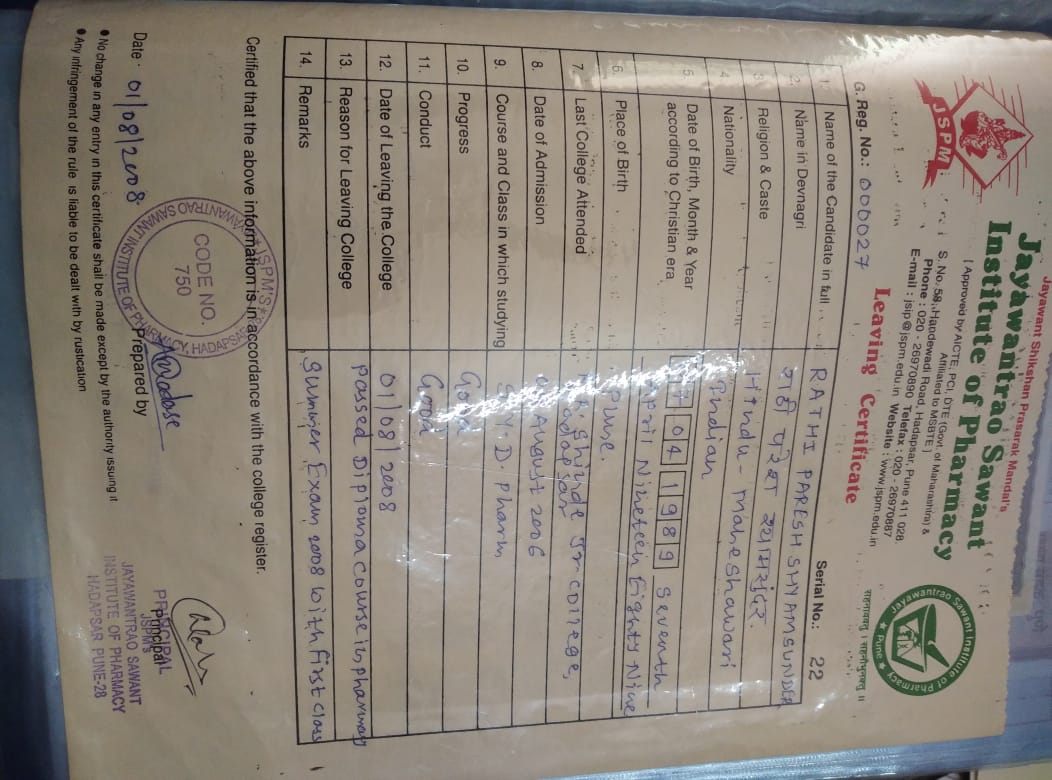 Jayawant Shikshan Prasarak Mandal's
Jayawantrao Sawant
Institute of Pharmacy
[ Approved by AICTE, PCI, DTE (Govt. of Maharashtra) &
Affiliated to MSBTE ]
S. No.58, Handewadi Road, Hadapsar, Pune 411 028.
Phone : 020 - 26970890 Telefax : 020 - 26970887
E-mail : jsip@jspm.edu.in Website : www.jspm.edu.in
JSPM
Jayawantrao Sawant Institute of Pharmacy
★ Pune ★
Leaving Certificate
G. Reg. No.: 000027
Serial No.: 22
1. Name of the Candidate in full RATHI PARESH SHYAMSUNDER
2. Name in Devnagri राठी परेश श्यामसुंदर.
3. Religion & Caste Hindu - Maheshawari
4. Nationality Indian
5. Date of Birth, Month & Year 07 04 1989 Seventh
according to Christian era April Nineteen Eighty Nine
6. Place of Birth Pune.
7. Last College Attended Shinde Jr College,
Hadapsar
8. Date of Admission August 2006
9. Course and Class in which studying S.Y. D. Pharm
10. Progress Good
11. Conduct Good
12. Date of Leaving the College 01/08/2008
13. Reason for Leaving College Passed Diploma Course in pharmacy
14. Remarks Summer Exam 2008 with first class
Certified that the above information is in accordance with the college register.
JSPM'S
JAYAWANTRAO SAWANT INSTITUTE OF PHARMACY, HADAPSAR
CODE NO.
750
Date : 01/08/2008
Prepared by
Principal
PRINCIPAL
JSPM'S
JAYAWANTRAO SAWANT
INSTITUTE OF PHARMACY
HADAPSAR PUNE-28
● No change in any entry in this certificate shall be made except by the authority issuing it
● Any infringement of the rule is liable to be dealt with by rustication